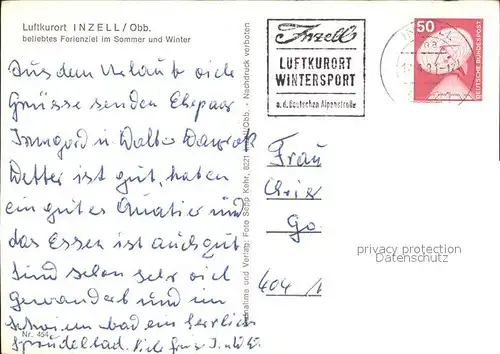 Luftkurort INZELL/Obb.
beliebtes Ferienziel im Sommer und Winter
Aus dem Urlaub viele
Grüsse senden Ehepaar
Irmgard u Walter
Wetter ist gut, haben
ein gutes Quatier und
das Essen ist auch gut
Sind schon sehr viel
gewandert und im
Schwimmbad ein herrlich
Sprudelbad. Viele Grüsse I. u W.
Nr. 454
Aufnahme und Verlag: Foto Sepp Kehr, 8221 Inzell/Obb. - Nachdruck verboten
Inzell
LUFTKURORT
WINTERSPORT
a. d. Deutschen Alpenstraße
50
DEUTSCHE BUNDESPOST
Frau
Go
404
privacy protection
Datenschutz